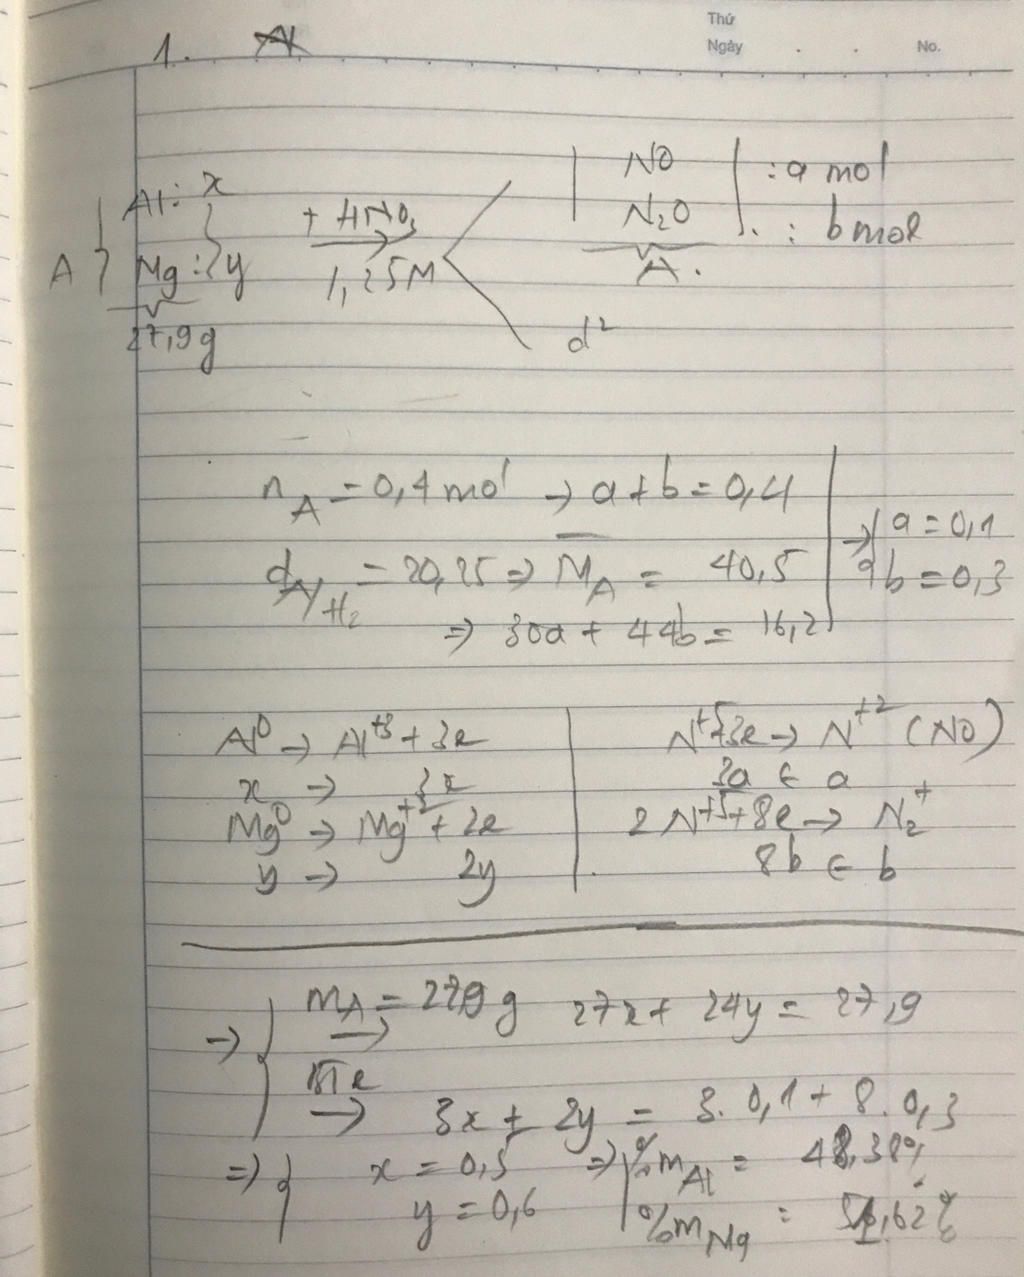 Thứ
Ngày . . No.
1. Al
Al: x
Mg: y
A
27,9g
+ HNO3
1,25M
NO : a mol
N2O : b mol
A.
d²
nA = 0,4 mol → a + b = 0,4
dA/H2 = 20,25 ⇒ MA = 40,5
⇒ 30a + 44b = 16,2
→ a = 0,1
b = 0,3
Al⁰ → Al⁺³ + 3e
x → 3x
Mg⁰ → Mg⁺² + 2e
y → 2y
N⁺⁵+3e → N⁺² (NO)
3a ← a
2N⁺⁵+8e → N2⁺
8b ← b
→ mA = 27,9 g 27x + 24y = 27,9
→
BTe
→ 3x + 2y = 3.0,1 + 8.0,3
⇒ x = 0,5 ⇒ %mAl = 48,38%
y = 0,6 %mMg = 51,62%